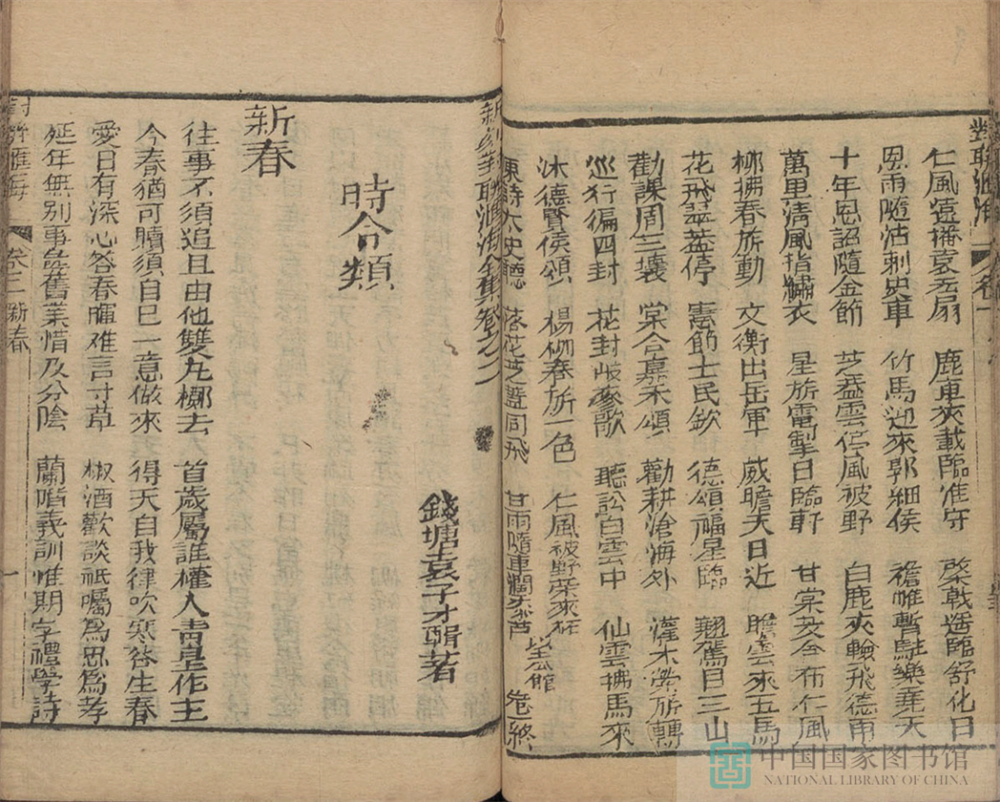 仁風遠播袁宏扇 鹿車夾載臨淮守 棨戟遥臨舒化日
恩雨隨沾刺史車 竹馬迎來郭細侯 襜帷暫駐樂垂天
十年恩詔隨金節 芝蓋雲停風被野 白鹿夾輪飛德雨
萬里清風指繡衣 星旂電掣日臨軒 甘棠芨舍布仁風
柳拂春旂動 文衡出岳軍 威瞻天日近 瞻雲來五馬
花飛翠蓋停 憲節士民欽 德頌福星臨 翹駕目三山
勸課周三壤 棠合嘉禾頌 勸耕滄海外 灌木旂轉
巡行徧四封 花封岐麥歌 聽訟白雲中 仙雲拂馬來
沐德賢侯頌 楊柳春旂一色 仁風被野來
東詩太史聽 落花芝蓋同飛 甘雨隨車 館 卷一終
對聯淵海 卷一
新刻對聯淵海全集卷之二
錢塘袁子才著
時令類
新春
往事不須追且由他雙丸擲去 首歲屬誰權人青皇作主
今春猶可贖須自己一意做來 得天自我律吹寒谷生春
愛日有深心答春暉难言寸草 椒酒歡談祇囑為忠為孝
延年無別事舊業惜及分陰 蘭階義訓惟期学禮學詩
卷二 新春 一
中国国家图书馆
NATIONAL LIBRARY OF CHINA